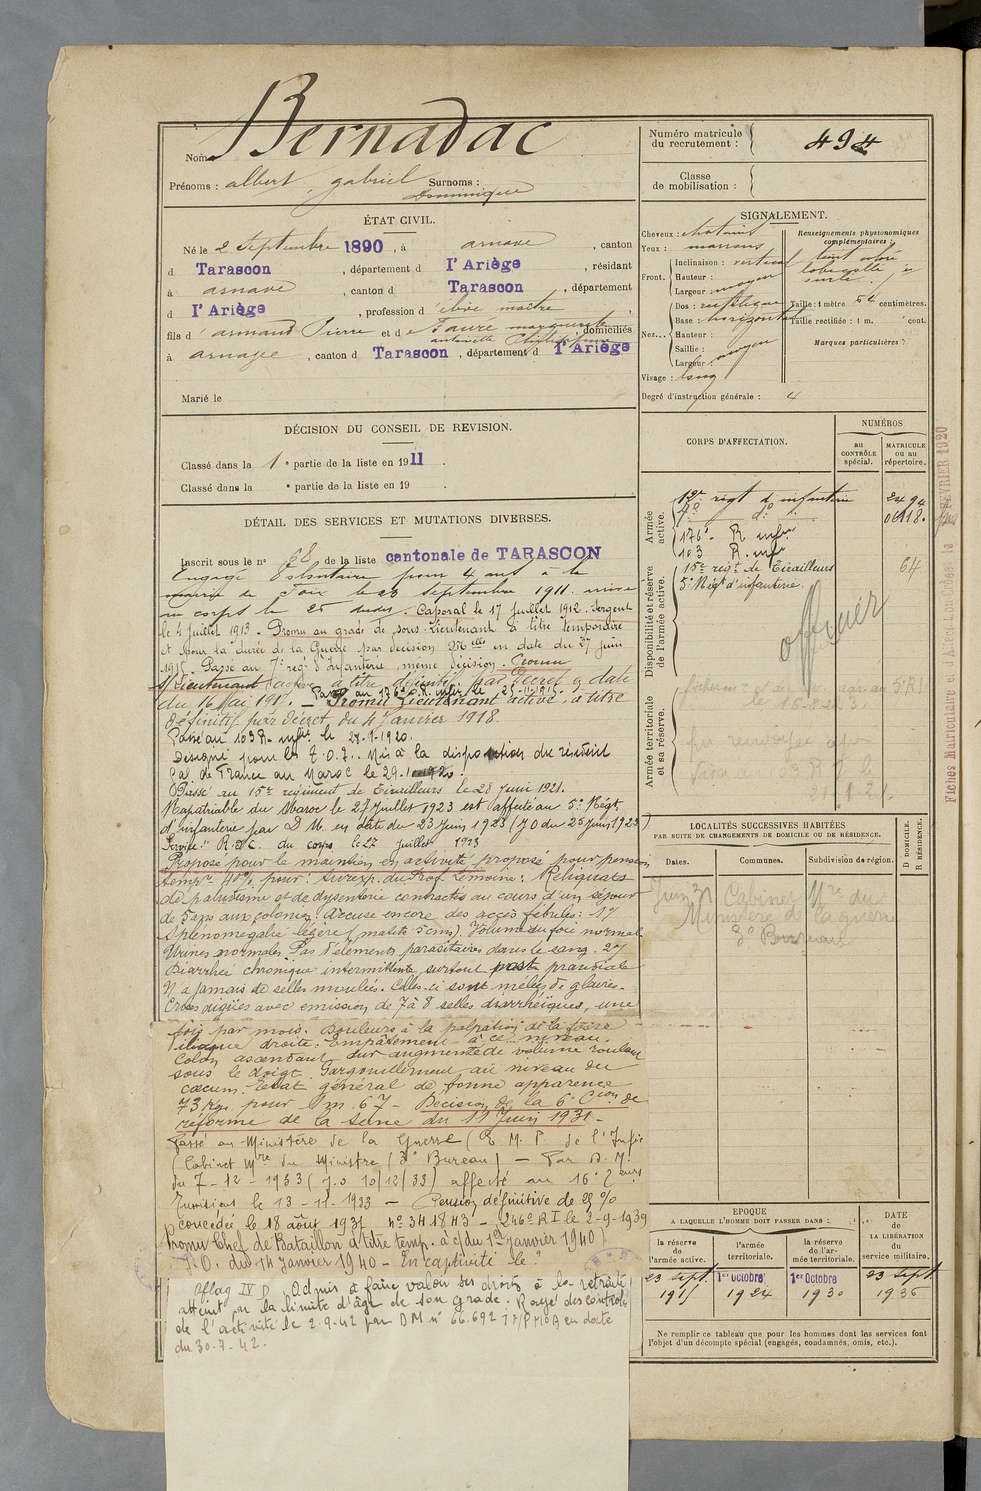 Nom Bernadac
Prénoms : albert, gabriel Surnoms :
Dominique
ÉTAT CIVIL.
Né le 2 Septembre 1890, à arnave, canton
d Tarascon, département d l'Ariège, résidant
à arnave, canton d Tarascon, département
d l'Ariège, profession d'élève maître
fils d'armand Pierre et de Faure marguerite, domiciliés
antoinette
à arnave, canton d Tarascon, département d l'Ariège
Marié le
DÉCISION DU CONSEIL DE REVISION.
Classé dans la 1e partie de la liste en 1911.
Classé dans la e partie de la liste en 19 .
DÉTAIL DES SERVICES ET MUTATIONS DIVERSES.
Inscrit sous le no 68 de la liste cantonale de TARASCON
Engagé Volontaire pour 4 ans à la
mairie de Foix le 23 septembre 1911. arrivé
au corps le 25 dudit. Caporal le 17 Juillet 1912. Sergent
le 4 Juillet 1913. Promu au grade de sous-Lieutenant à titre temporaire
et pour la durée de la Guerre par décision Mlle en date du 27 juin
1915. Passé au 7e régt d'Infanterie, même décision. Promu
s/Lieutenant (active) à titre définitif par Décret en date
du 16 Mai 191 . Passé au 176e R. Infie le 25-11-1915.
Promu Lieutenant active, à titre
définitif par décret du 4 Janvier 1918.
Passé au 103 R. Infie le 28-9-1920.
Désigné pour les T.O.E. Mis à la disposition du résident
Gal de France au Maroc le 29-1
Passé au 15e régiment de Tirailleurs le 28 Juin 1921.
Rapatriable du Maroc le 27 Juillet 1923 est affecté au 5e Régt
d'infanterie par D.M. en date du 23 Juin 1923 (JO du 25 Juin 1923)
du corps le 27 Juillet 1923
Proposé pour le maintien en activité, proposé pour pension
tempre 40% pour : surexp. du Prof Lemoine : Reliquats
de paludisme et de dysenterie contractés au cours d'un séjour
de 5 ans aux colonies. Accuse encore des accès fébriles : 1º/
Splénomégalie légère (matité 5 cms). Volume du foie normal
Urines normales. Pas d'éléments parasitaires dans le sang. 2º/
Diarrhée chronique intermittente surtout post prandiale
N'a jamais de selles moulées. Celles-ci sont mêlées de glaires.
Crises aigües avec émission de 7 à 8 selles diarrhéiques, une
fois par mois. Douleurs à la palpation de la fosse
iliaque droite. Empâtement à ce niveau.
Colon ascendant dur augmenté de volume roulant
sous le doigt. Gargouillement au niveau du
caecum. Etat général de bonne apparence
73 kgs pour 1m.67 - Décision de la 6e Cion de
réforme de la Seine du 11 Juin 1931.
Passé au Ministère de la Guerre (E.M.P. de l'Infie
(Cabinet Mre du Ministre (3e Bureau) - Par D.M.
du 7-12-1933 (J.O 10/12/33) affecté au 16e
le 13-12-1933 - Pension définitive de 25 %
concédée le 18 août 1937 no 341843 - 246e RI le 2-9-1939
Promu Chef de Bataillon à titre temp. à c/ du 1er Janvier 1940)
J.O. du 14 Janvier 1940 - En captivité le ?
Oflag IV D Admis à faire valoir ses droits à la retraite
atteint par la limite d'âge de son grade. Rayé des contrôles
de l'activité le 2-9-42 par DM no 66.692 en date
du 30-7-42.
Numéro matricule
du recrutement : 494
Classe
de mobilisation :
SIGNALEMENT.
Cheveux : chatains
Yeux : marrons
Front. Inclinaison : vertical
Hauteur :
Largeur : moyen
Nez... Dos : rectiligne
Base : horizontal
Hauteur :
Saillie :
Largeur : moyen
Visage : long
Degré d'instruction générale : 4
Renseignements physionomiques
complémentaires :
Taille : 1 mètre 54 centimètres.
Taille rectifiée : 1 m. cent.
Marques particulières :
CORPS D'AFFECTATION.
NUMÉROS
au
CONTRÔLE
spécial.
MATRICULE
ou au
répertoire.
Armée
active.
12e régt d'infanterie 2494
7e do
176e R infie
103 R. infie
Disponibilité et réserve
de l'armée active.
15e régt de Tirailleurs 64
5e Régt d'infanterie
officier
Armée territoriale
et sa réserve.
LOCALITÉS SUCCESSIVES HABITÉES
PAR SUITE DE CHANGEMENTS DE DOMICILE OU DE RÉSIDENCE.
Dates. Communes. Subdivision de région.
D DOMICILE.
R RÉSIDENCE.
Juin 31 Cabinet Mre du
Ministère de la guerre
3e Bureau
EPOQUE
A LAQUELLE L'HOMME DOIT PASSER DANS :
la réserve
de
l'armée active.
l'armée
territoriale.
la réserve
de l'ar-
mée territoriale.
DATE
de
LA LIBÉRATION
du
service militaire.
23 sept. 1er Octobre 1er Octobre 23 sept
1915 1924 1930 1936
Ne remplir ce tableau que pour les hommes dont les services font
l'objet d'un décompte spécial (engagés, condamnés, omis, etc.).